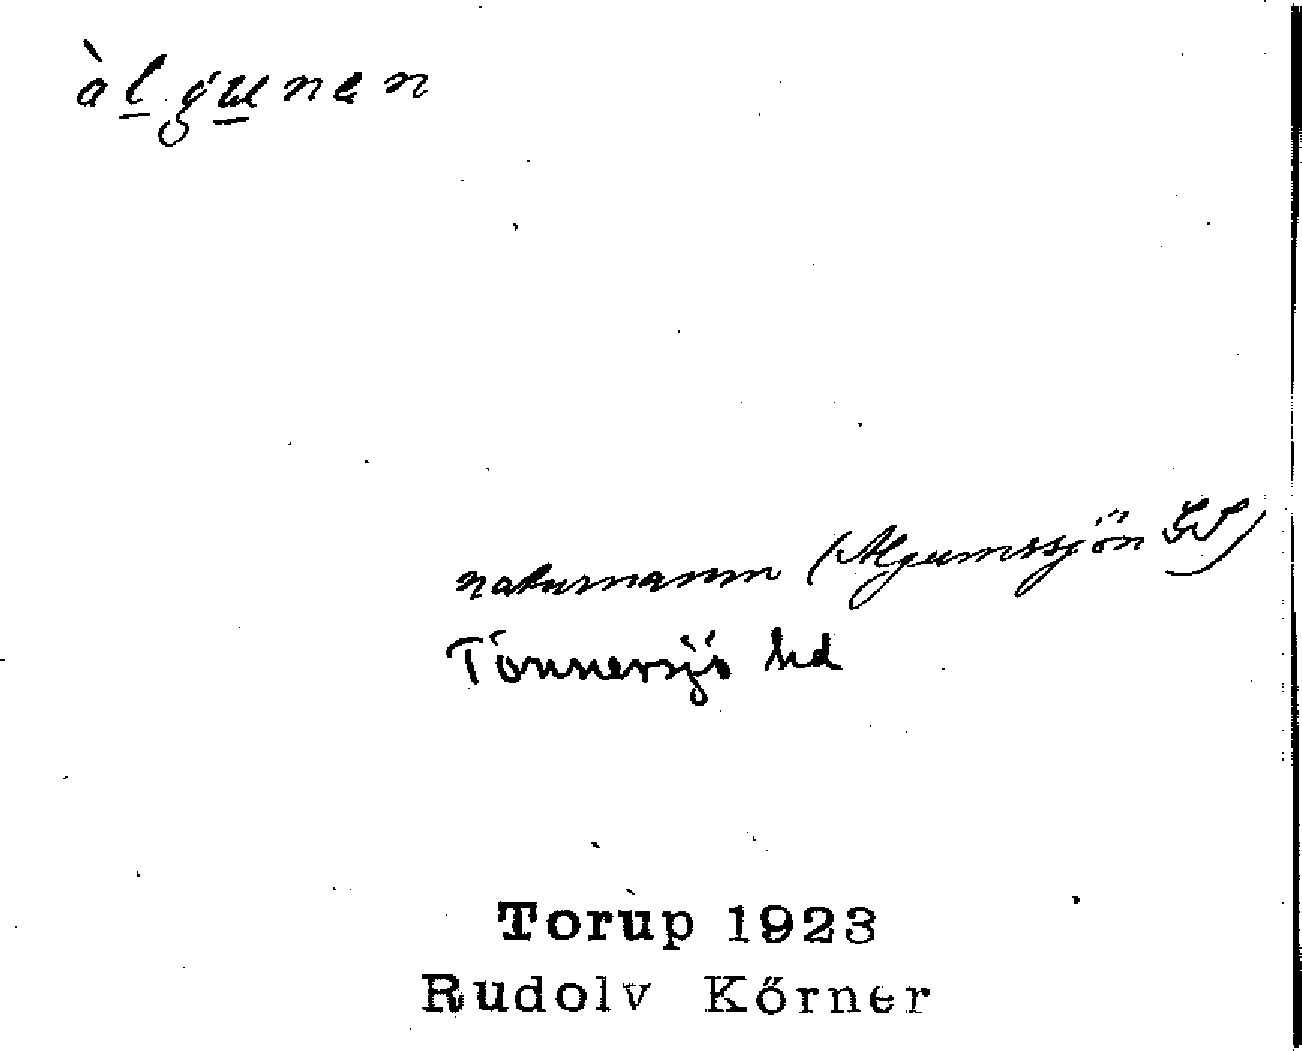 àlgunen
naturnamn (Algumssjön
Tönnersjö hd
Torup 1923
Rudolv Körner